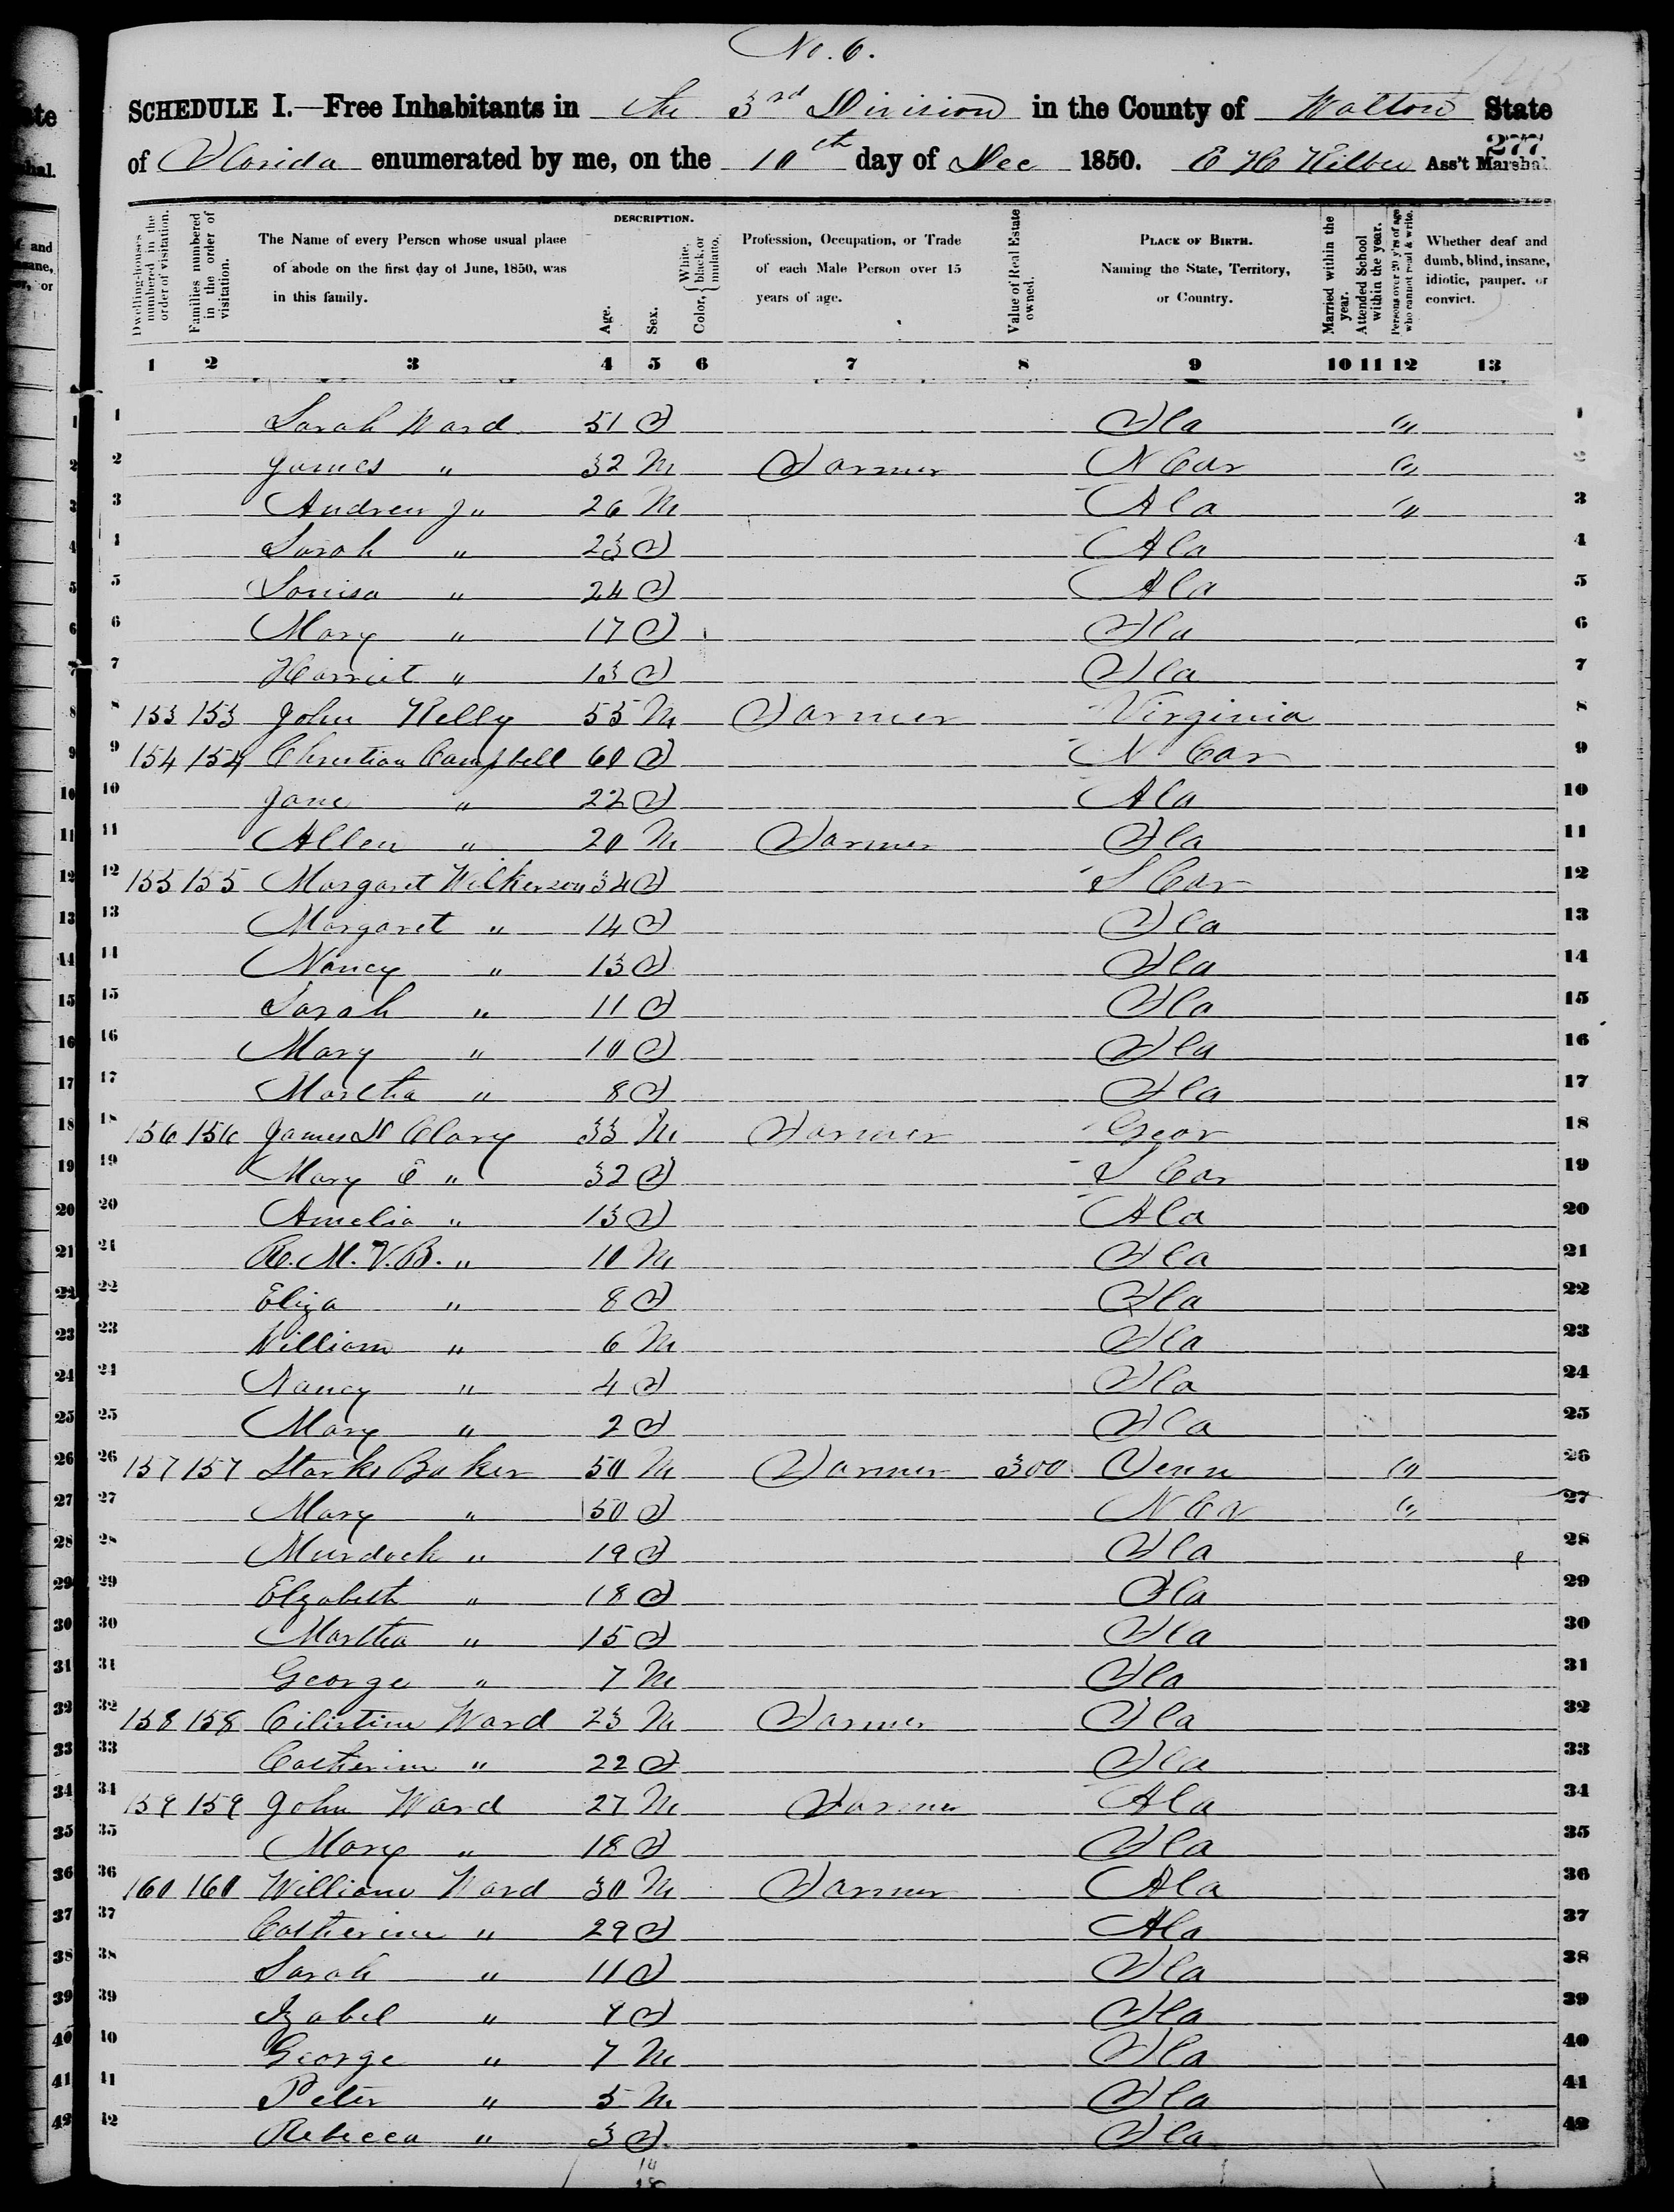 No. 6.
SCHEDULE I.—Free Inhabitants in the 3rd Division in the County of Walton State
of Florida enumerated by me, on the 10th day of Dec 1850. E H Ass't Marshal
277
DESCRIPTION.
Dwelling-houses numbered in the order of visitation.
Families numbered in the order of visitation.
The Name of every Person whose usual place of abode on the first day of June, 1850, was in this family.
Age.
Sex.
Color, { White, black, or mulatto.
Profession, Occupation, or Trade of each Male Person over 15 years of age.
Value of Real Estate owned.
PLACE OF BIRTH. Naming the State, Territory, or Country.
Married within the year.
Attended School within the year.
Persons over 20 y'rs of age who cannot read & write.
Whether deaf and dumb, blind, insane, idiotic, pauper, or convict.
1 2 3 4 5 6 7 8 9 10 11 12 13
1 Sarah Ward 51 F Fla " 1
2 James " 32 M Farmer N Car " 2
3 Andrew J " 26 M Ala " 3
4 Sarah " 23 F Ala 4
5 Louisa " 24 F Ala 5
6 Mary " 17 F Fla 6
7 Harriet " 13 F Fla 7
8 153 153 John Kelly 55 M Farmer Virginia 8
9 154 154 Christian Campbell 60 F N Car 9
10 Jane " 22 F Ala 10
11 Allen " 20 M Farmer Fla 11
12 155 155 Margaret Wilkerson 34 F S Car 12
13 Margaret " 14 F Fla 13
14 Nancy " 13 F Fla 14
15 Sarah " 11 F Fla 15
16 Mary " 10 F Fla 16
17 Martha " 8 F Fla 17
18 156 156 James Clary 33 M Farmer Geor 18
19 Mary E " 32 F S Car 19
20 Amelia " 13 F Ala 20
21 R. M. V. B. " 10 M Fla 21
22 Eliza " 8 F Fla 22
23 William " 6 M Fla 23
24 Nancy " 4 F Fla 24
25 Mary " 2 F Fla 25
26 157 157 Starks Baker 50 M Farmer 300 Tenn " 26
27 Mary " 50 F N Ca " 27
28 Murdock " 19 F Fla 28
29 Elzabeth " 18 F Fla 29
30 Martha " 15 F Fla 30
31 George " 7 M Fla 31
32 158 158 Cilistine Ward 23 M Farmer Fla 32
33 Catherine " 22 F Fla 33
34 159 159 John Ward 27 M Farmer Ala 34
35 Mary " 18 F Fla 35
36 160 160 William Ward 30 M Farmer Ala 36
37 Catherine " 29 F Ala 37
38 Sarah " 11 F Fla 38
39 Izabel " 9 F Fla 39
40 George " 7 M Fla 40
41 Peter " 5 M Fla 41
42 Rebecca " 3 F Fla 42
14